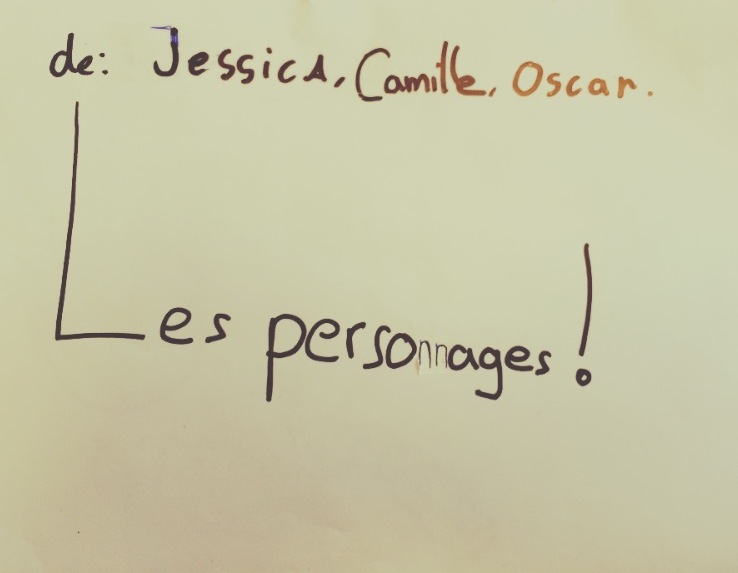 de: Jessica, Camille, Oscar.
Les personnages!